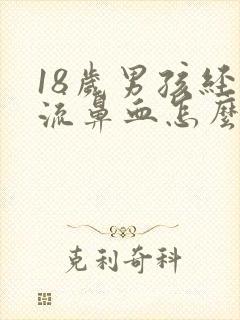 18歲男孩經
流鼻血怎麼
克利奇科